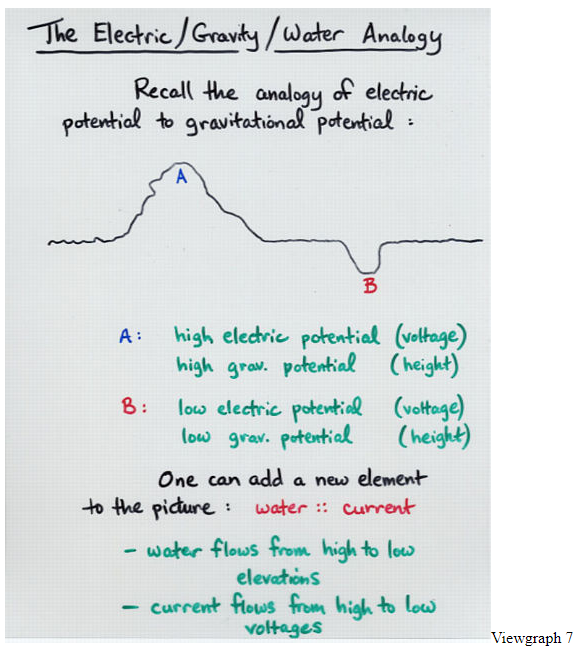 The Electric/Gravity/Water Analogy
Recall the analogy of electric
potential to gravitational potential :
A
B
A: high electric potential (voltage)
high grav. potential (height)
B: low electric potential (voltage)
low grav. potential (height)
One can add a new element
to the picture : water :: current
- water flows from high to low
elevations
- current flows from high to low
voltages
Viewgraph 7